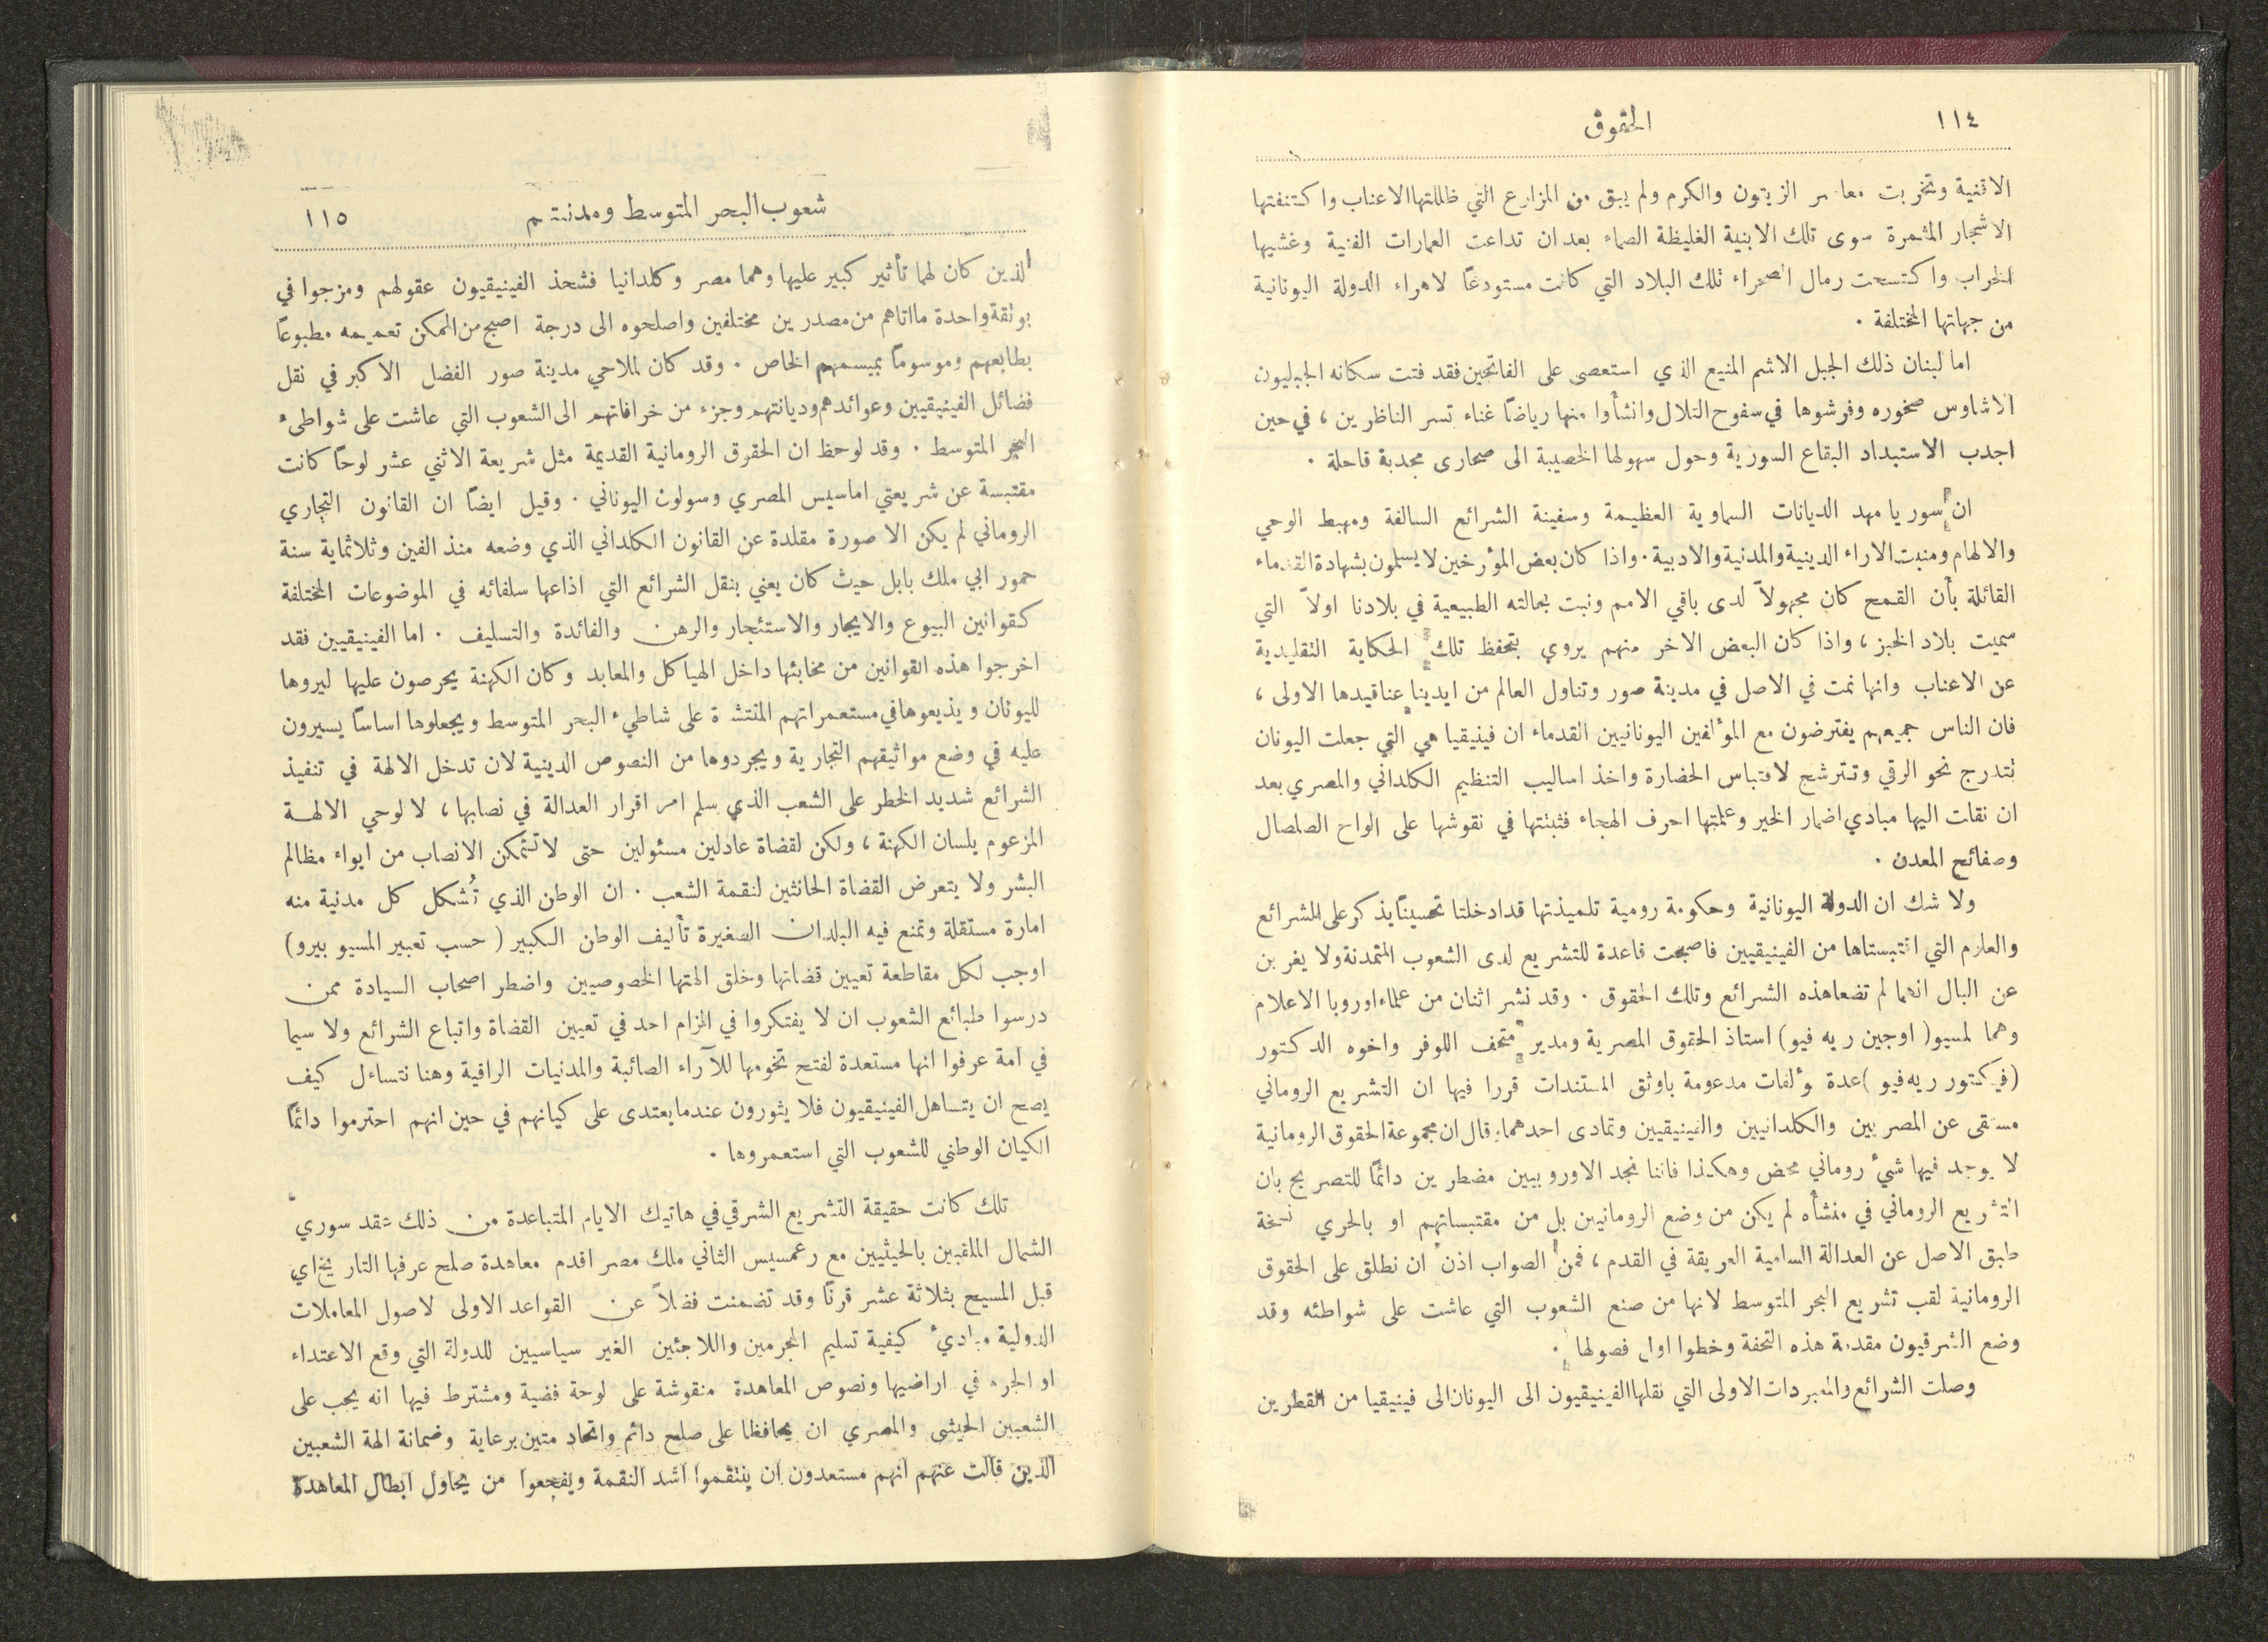 ١١٤
الحقوق
الاقنية وتخربت معاصر الزيتون والكرم ولم يبق من المزارع التي ظللتها الاعناب واكتنفتها
الاشجار المثمرة سوى تلك الابنية الغليظة الصماء بعد ان تداعت العمارات الفنية وغشيها
الخراب واكتسحت رمال الصحراء تلك البلاد التي كانت مستودعاً لاهراء الدولة اليونانية
من جهاتها المختلفة .
اما لبنان ذلك الجبل الاشم المنيع الذي استعصى على الفاتحين فقد فتت سكانه الجبليون
الاشاوس صخوره وفرشوها في سفوح التلال وانشأوا منها رياضاً غناء تسر الناظرين ، في حين
اجدب الاستبداد البقاع السورية وحول سهولها الخصيبة الى صحارى مجدبة قاحلة .
ان سوريا مهد الديانات السماوية العظيمة وسفينة الشرائع السالفة ومهبط الوحي
والالهام ومنبت الاراء الدينية والمدنية والادبية . واذا كان بعض المؤرخين لا يسلمون بشهادة القدماء
القائلة بأن القمح كان مجهولاً لدى باقي الامم ونبت بحالته الطبيعية في بلادنا اولاً التي
سميت بلاد الخبز ، واذا كان البعض الاخر منهم يروي بتحفظ تلك الحكاية التقليدية
عن الاعناب وانها نمت في الاصل في مدينة صور وتناول العالم من ايدينا عناقيدها الاولى ،
فان الناس جميعهم يفترضون مع المؤلفين اليونانيين القدماء ان فينيقيا هي التي جعلت اليونان
تتدرج نحو الرقي وتترشح لاقتباس الحضارة واخذ اساليب التنظيم الكلداني والمصري بعد
ان نقلت اليها مبادي اضمار الخير وعلمتها احرف الهجاء فثبتتها في نقوشها على الواح الصلصال
وصفائح المعدن .
ولا شك ان الدولة اليونانية وحكومة رومية تلميذتها قد ادخلتا تحسيناً يذكر على الشرائع
والعلوم التي اقتبستاها من الفينيقيين فاصبحت قاعدة للتشريع لدى الشعوب المتمدنة ولا يغربن
عن البال انهما لم تضعا هذه الشرائع وتلك الحقوق . وقد نشر اثنان من علماء اوروبا الاعلام
وهما لمسيو ( اوجين ريه فيو ) استاذ الحقوق المصرية ومدير متحف اللوفر واخوه الدكتور
( فيكتور ريه فيو ) عدة مؤلفات مدعومة باوثق المستندات قررا فيها ان التشريع الروماني
مستقى عن المصريين والكلدانيين والفينيقيين وتمادى احدهما فقال ان مجموعة الحقوق الرومانية
لا يوجد فيها شيء روماني محض وهكذا فاننا نجد الاوروبيين مضطرين دائماً للتصريح بان
التشريع الروماني في منشأه لم يكن من وضع الرومانيين بل من مقتبساتهم او بالحري نسخة
طبق الاصل عن العدالة السامية العريقة في القدم ، فمن الصواب اذن ان نطلق على الحقوق
الرومانية لقب تشريع البحر المتوسط لانها من صنع الشعوب التي عاشت على شواطئه وقد
وضع الشرقيون مقدمة هذه التحفة وخطوا اول فصولها .
وصلت الشرائع والمبردات الاولى التي نقلها الفينيقيون الى اليونان الى فينيقيا من القطرين
شعوب البحر المتوسط ومدنيتهم
١١٥
الذين كان لهما تأثير كبير عليها وهما مصر وكلدانيا فشحذ الفينيقيون عقولهم ومزجوا في
بوتقة واحدة ما اتاهم من مصدرين مختلفين واصلحوه الى درجة اصبح من الممكن تعميمه مطبوعاً
بطابعهم وموسوماً بميسمهم الخاص . وقد كان لملاحي مدينة صور الفضل الاكبر في نقل
فضائل الفينيقيين وعوائدهم وديانتهم وجزء من خرافاتهم الى الشعوب التي عاشت على شواطىء
البحر المتوسط . وقد لوحظ ان الحقوق الرومانية القديمة مثل شريعة الاثني عشر لوحاً كانت
مقتبسة عن شريعتي اماسيس المصري وسولون اليوناني . وقيل ايضاً ان القانون التجاري
الروماني لم يكن الا صورة مقلدة عن القانون الكلداني الذي وضعه منذ الفين وثلاثماية سنة
حمورابي ملك بابل حيث كان يعني بنقل الشرائع التي اذاعها سلفائه في الموضوعات المختلفة
كقوانين البيوع والايجار والاستئجار والرهن والفائدة والتسليف . اما الفينيقيين فقد
اخرجوا هذه القوانين من مخابئها داخل الهياكل والمعابد وكان الكهنة يحرصون عليها ليروها
لليونان ويذيعوها في مستعمراتهم المنتشرة على شاطيء البحر المتوسط ويجعلوها اساساً يسيرون
عليه في وضع مواثيقهم التجارية ويجردوها من النصوص الدينية لان تدخل الالهة في تنفيذ
الشرائع شديد الخطر على الشعب الذي سلم امر اقرار العدالة في نصابها ، لا لوحي الالهة
المزعوم بلسان الكهنة ، ولكن لقضاة عادلين مسئولين حتى لا تتمكن الانصاب من ايواء مظالم
البشر ولا يتعرض القضاة الحانثين لنقمة الشعب . ان الوطن الذي تُشكل كل مدنية منه
امارة مستقلة وتمنع فيه البلدان الصغيرة تأليف الوطن الكبير ( حسب تعبير المسيو بيرو )
اوجب لكل مقاطعة تعيين قضاتها وخلق الهتها الخصوصيين واضطر اصحاب السيادة ممن
درسوا طبائع الشعوب ان لا يفتكروا في الزام احد في تعيين القضاة واتباع الشرائع ولا سيما
في امة عرفوا انها مستعدة لفتح تخومها للآراء الصائبة والمدنيات الراقية وهنا نتساءل كيف
يصح ان يتساهل الفينيقيون فلا يثورون عندما يعتدى على كيانهم في حين انهم احترموا دائماً
الكيان الوطني للشعوب التي استعمروها .
تلك كانت حقيقة التشريع الشرقي في هاتيك الايام المتباعدة من ذلك عقد سوريّ
الشمال الملقبين بالحيثيين مع رعمسيس الثاني ملك مصر اقدم معاهدة صلح عرفها التاريخ اي
قبل المسيح بثلاثة عشر قرناً وقد تضمنت فضلاً عن القواعد الاولى لاصول المعاملات
الدولية مبادئ كيفية تسليم المجرمين واللاجئين الغير سياسيين للدولة التي وقع الاعتداء
او الجرم في اراضيها ونصوص المعاهدة منقوشة على لوحة فضية ومشترط فيها انه يجب على
الشعبين الحيثي والمصري ان يحافظا على صلح دائم واتحاد متين برعاية وضمانة الهة الشعبين
الذين قالت عنهم انهم مستعدون ان ينتقموا اشد النقمة ويفجعوا من يحاول ابطال المعاهدة